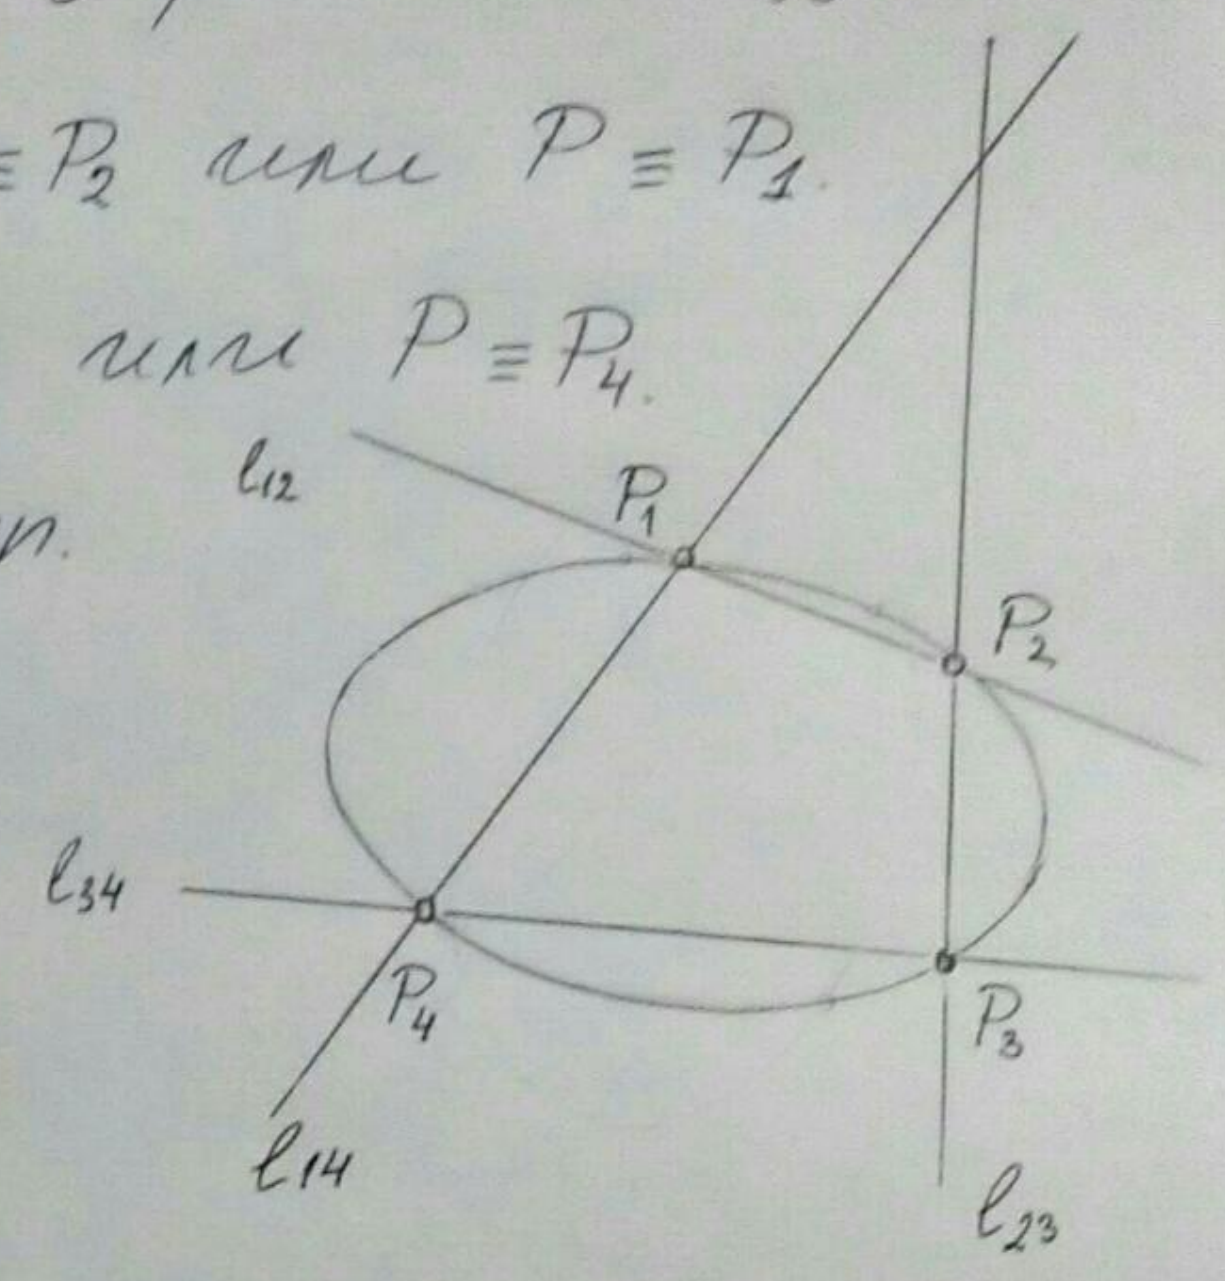 ≡ P₂ или P ≡ P₁.
или P ≡ P₄.
l₁₂
P₁
P₂
l₃₄
P₄
P₃
l₁₄
l₂₃